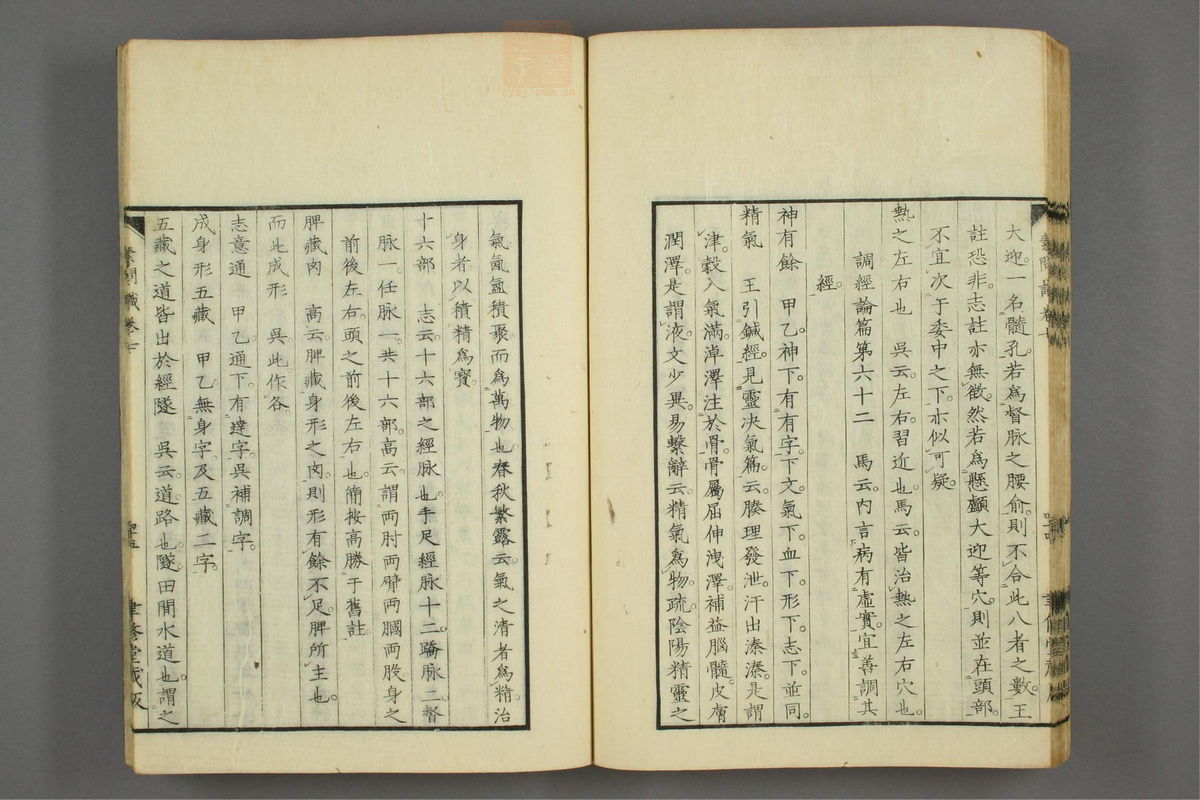 大迎。一名髓孔。若爲督脉之腰俞。則不合此八者之數。王
註恐非。志註亦無徵。然若爲懸顱大迎等穴。則並在頭部。
不宜次于委中之下。亦似可疑。
熱之左右也　吳云。左右。習近也。馬云。皆治熱之左右穴也。
調經論篇第六十二　馬云。内言病有虛實。宜善調其
經。
神有餘　甲乙。神下。有有字。下文氣下。血下。形下。志下。並同。
精氣　王引鍼經。見靈決氣篇。云。腠理發泄。汗出溱溱。是謂
津。穀入氣滿。淖澤注於骨。骨屬屈伸洩澤。補益腦髓。皮膚
潤澤。是謂液。文少異。易繫辭云。精氣爲物。疏。陰陽精靈之
氣。氤氳積聚而爲萬物也。春秋繁露云。氣之清者爲精。治
身者。以積精爲寶。
十六部　志云。十六部之經脉也。手足經脉十二。蹻脉二。督
脉一。任脉一。共十六部。高云。謂兩肘兩臂兩膕兩股。身之
前後左右。頭之前後左右也。簡按高勝于舊註。
脾藏肉　高云。脾藏身形之肉。則形有餘不足。脾所主也。
而此成形　吳。此作各。
志意通　甲乙。通下。有達字。吳補調字。
成身形五藏　甲乙。無身字。及五藏二字。
五藏之道皆出於經隧　吳云。道。路也。隧。田間水道也。謂之
素問識卷七
聿修堂藏版